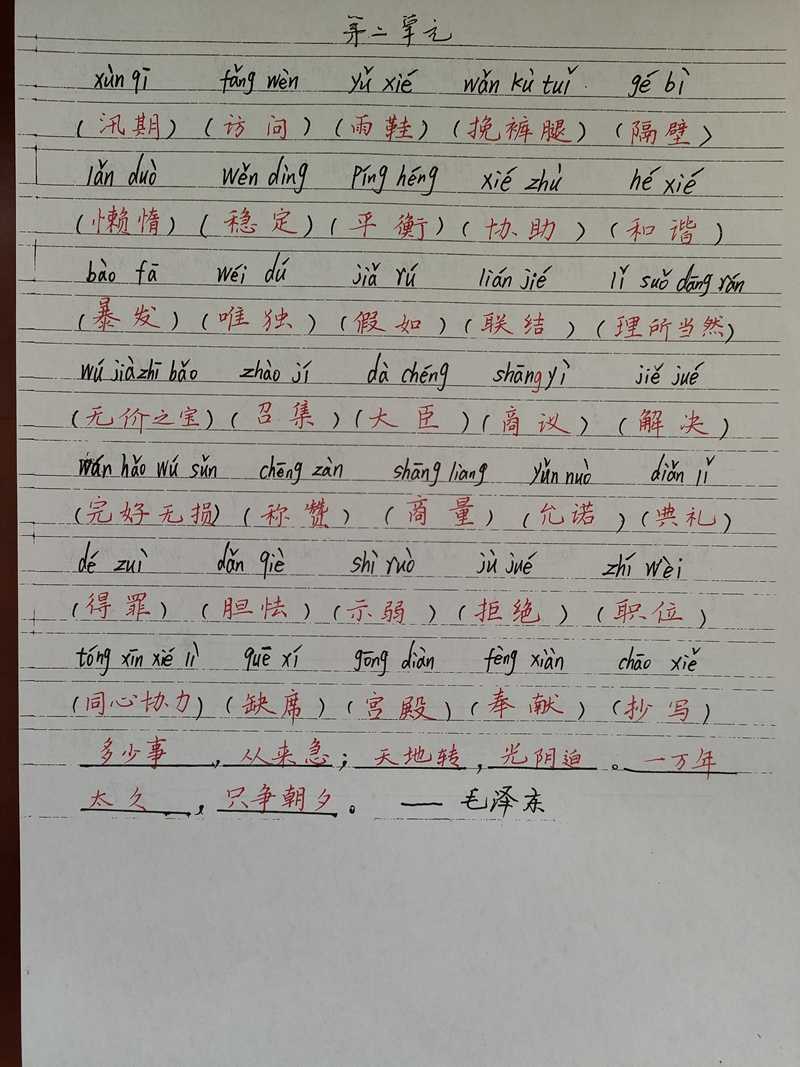 第二单元
xùn qī fǎng wèn yǔ xié wǎn kù tuǐ gé bì
(汛期) (访问) (雨鞋) (挽裤腿) (隔壁)
lǎn duò wěn dìng píng héng xié zhù hé xié
(懒惰) (稳定) (平衡) (协助) (和谐)
bào fā wéi dú jiǎ rú lián jié lǐ suǒ dāng rán
(暴发) (唯独) (假如) (联结) (理所当然)
wú jiàzhī bǎo zhào jí dà chéng shāng yì jiě jué
(无价之宝) (召集) (大臣) (商议) (解决)
wán hǎo wú sǔn chēng zàn shāng liang yǔn nuò diǎn lǐ
(完好无损) (称赞) (商量) (允诺) (典礼)
dé zuì dǎn qiè shì ruò jù jué zhí wèi
(得罪) (胆怯) (示弱) (拒绝) (职位)
tóng xīn xié lì quē xí gōng diàn fèng xiàn chāo xiě
(同心协力) (缺席) (宫殿) (奉献) (抄写)
多少事，从来急；天地转，光阴迫。一万年
太久，只争朝夕。 —— 毛泽东